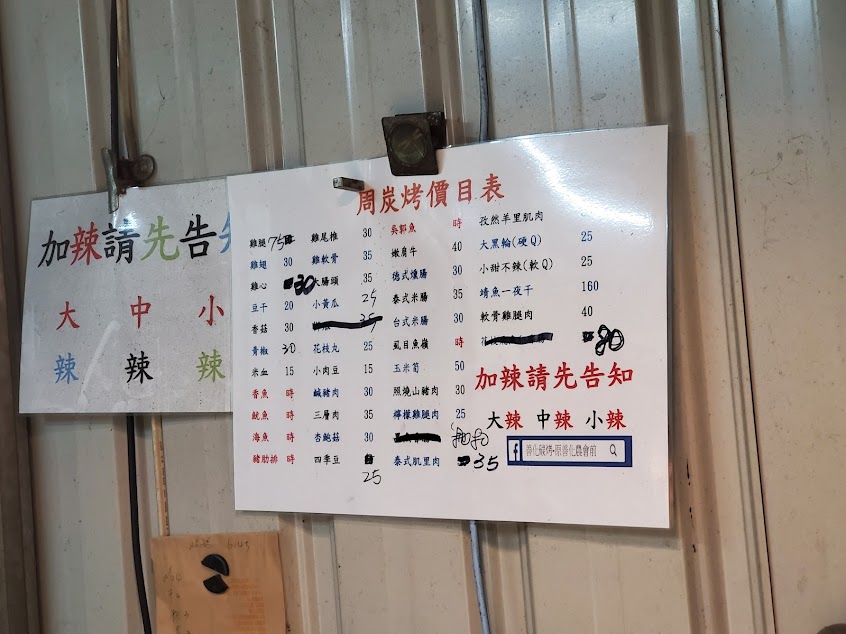 加辣請先告
大 中 小
辣 辣 辣
周炭烤價目表
雞腿 75
雞翅 30
雞心 30
豆干 20
香菇 30
青椒 30
米血 15
香魚 時
魷魚 時
海魚 時
豬肋排 時
雞尾椎 30
雞軟骨 35
大腸頭 35
小黃瓜 25
花枝丸 25
小肉豆 15
鹹豬肉 30
三層肉 35
杏鮑菇 30
四季豆 25
吳郭魚 時
嫩腐牛 40
德式燻腸 30
泰式米腸 35
台式米腸 30
虱目魚嶺 時
玉米筍 50
照燒山豬肉 30
檸檬雞腿肉 25
泰式肌里肉 35
孜然羊里肌肉
大黑輪(硬Q) 25
小甜不辣(軟Q) 25
鯖魚一夜干 160
軟骨雞腿肉 40
80
加辣請先告知
大辣 中辣 小辣
f 善化碳烤-原善化農會前